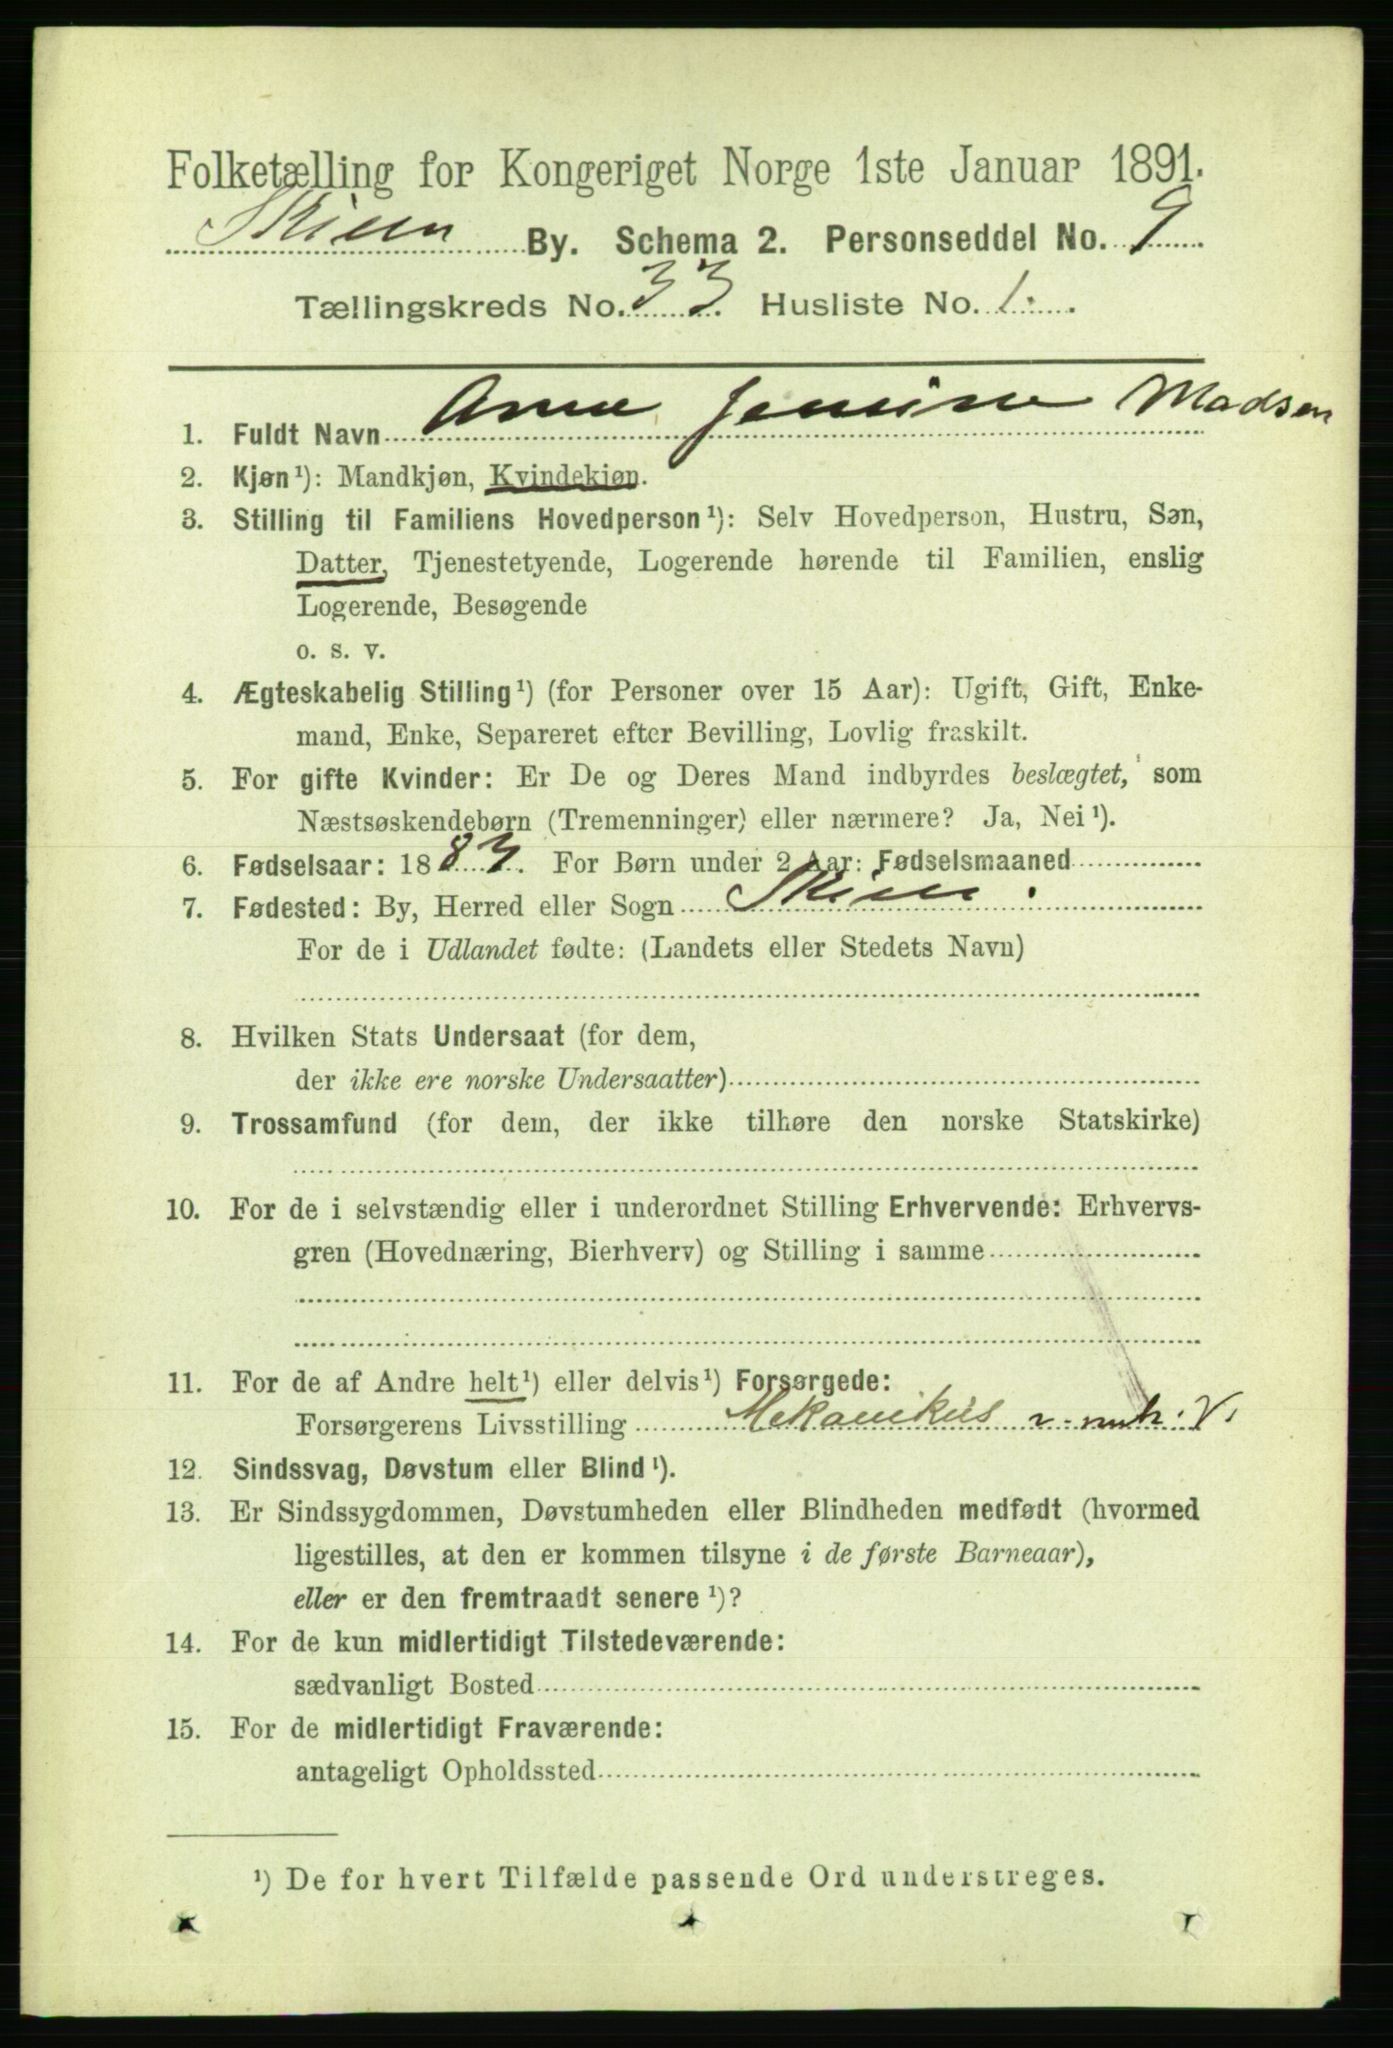 Folketælling for Kongeriget Norge 1ste Januar 1891.
Skien By. Schema 2. Personseddel No. 9
Tællingskreds No. 33. Husliste No. 1.
1. Fuldt Navn Anne Jensine Madsen
2. Kjøn¹): Mandkjøn, Kvindekjøn.
3. Stilling til Familiens Hovedperson¹): Selv Hovedperson, Hustru, Søn,
Datter, Tjenestetyende, Logerende hørende til Familien, enslig
Logerende, Besøgende
o. s. v.
4. Ægteskabelig Stilling¹) (for Personer over 15 Aar): Ugift, Gift, Enke-
mand, Enke, Separeret efter Bevilling, Lovlig fraskilt.
5. For gifte Kvinder: Er De og Deres Mand indbyrdes beslægtet, som
Næstsøskendebørn (Tremenninger) eller nærmere? Ja, Nei¹).
6. Fødselsaar: 1883. For Børn under 2 Aar: Fødselsmaaned
7. Fødested: By, Herred eller Sogn Skien.
For de i Udlandet fødte: (Landets eller Stedets Navn)
8. Hvilken Stats Undersaat (for dem,
der ikke ere norske Undersaatter)
9. Trossamfund (for dem, der ikke tilhøre den norske Statskirke)
10. For de i selvstændig eller i underordnet Stilling Erhvervende: Erhvervs-
gren (Hovednæring, Bierhverv) og Stilling i samme
11. For de af Andre helt¹) eller delvis¹) Forsørgede:
Forsørgerens Livsstilling Mekanikus v. mek. V.
12. Sindssvag, Døvstum eller Blind¹).
13. Er Sindssygdommen, Døvstumheden eller Blindheden medfødt (hvormed
ligestilles, at den er kommen tilsyne i de første Barneaar),
eller er den fremtraadt senere¹)?
14. For de kun midlertidigt Tilstedeværende:
sædvanligt Bosted
15. For de midlertidigt Fraværende:
antageligt Opholdssted
¹) De for hvert Tilfælde passende Ord understreges.